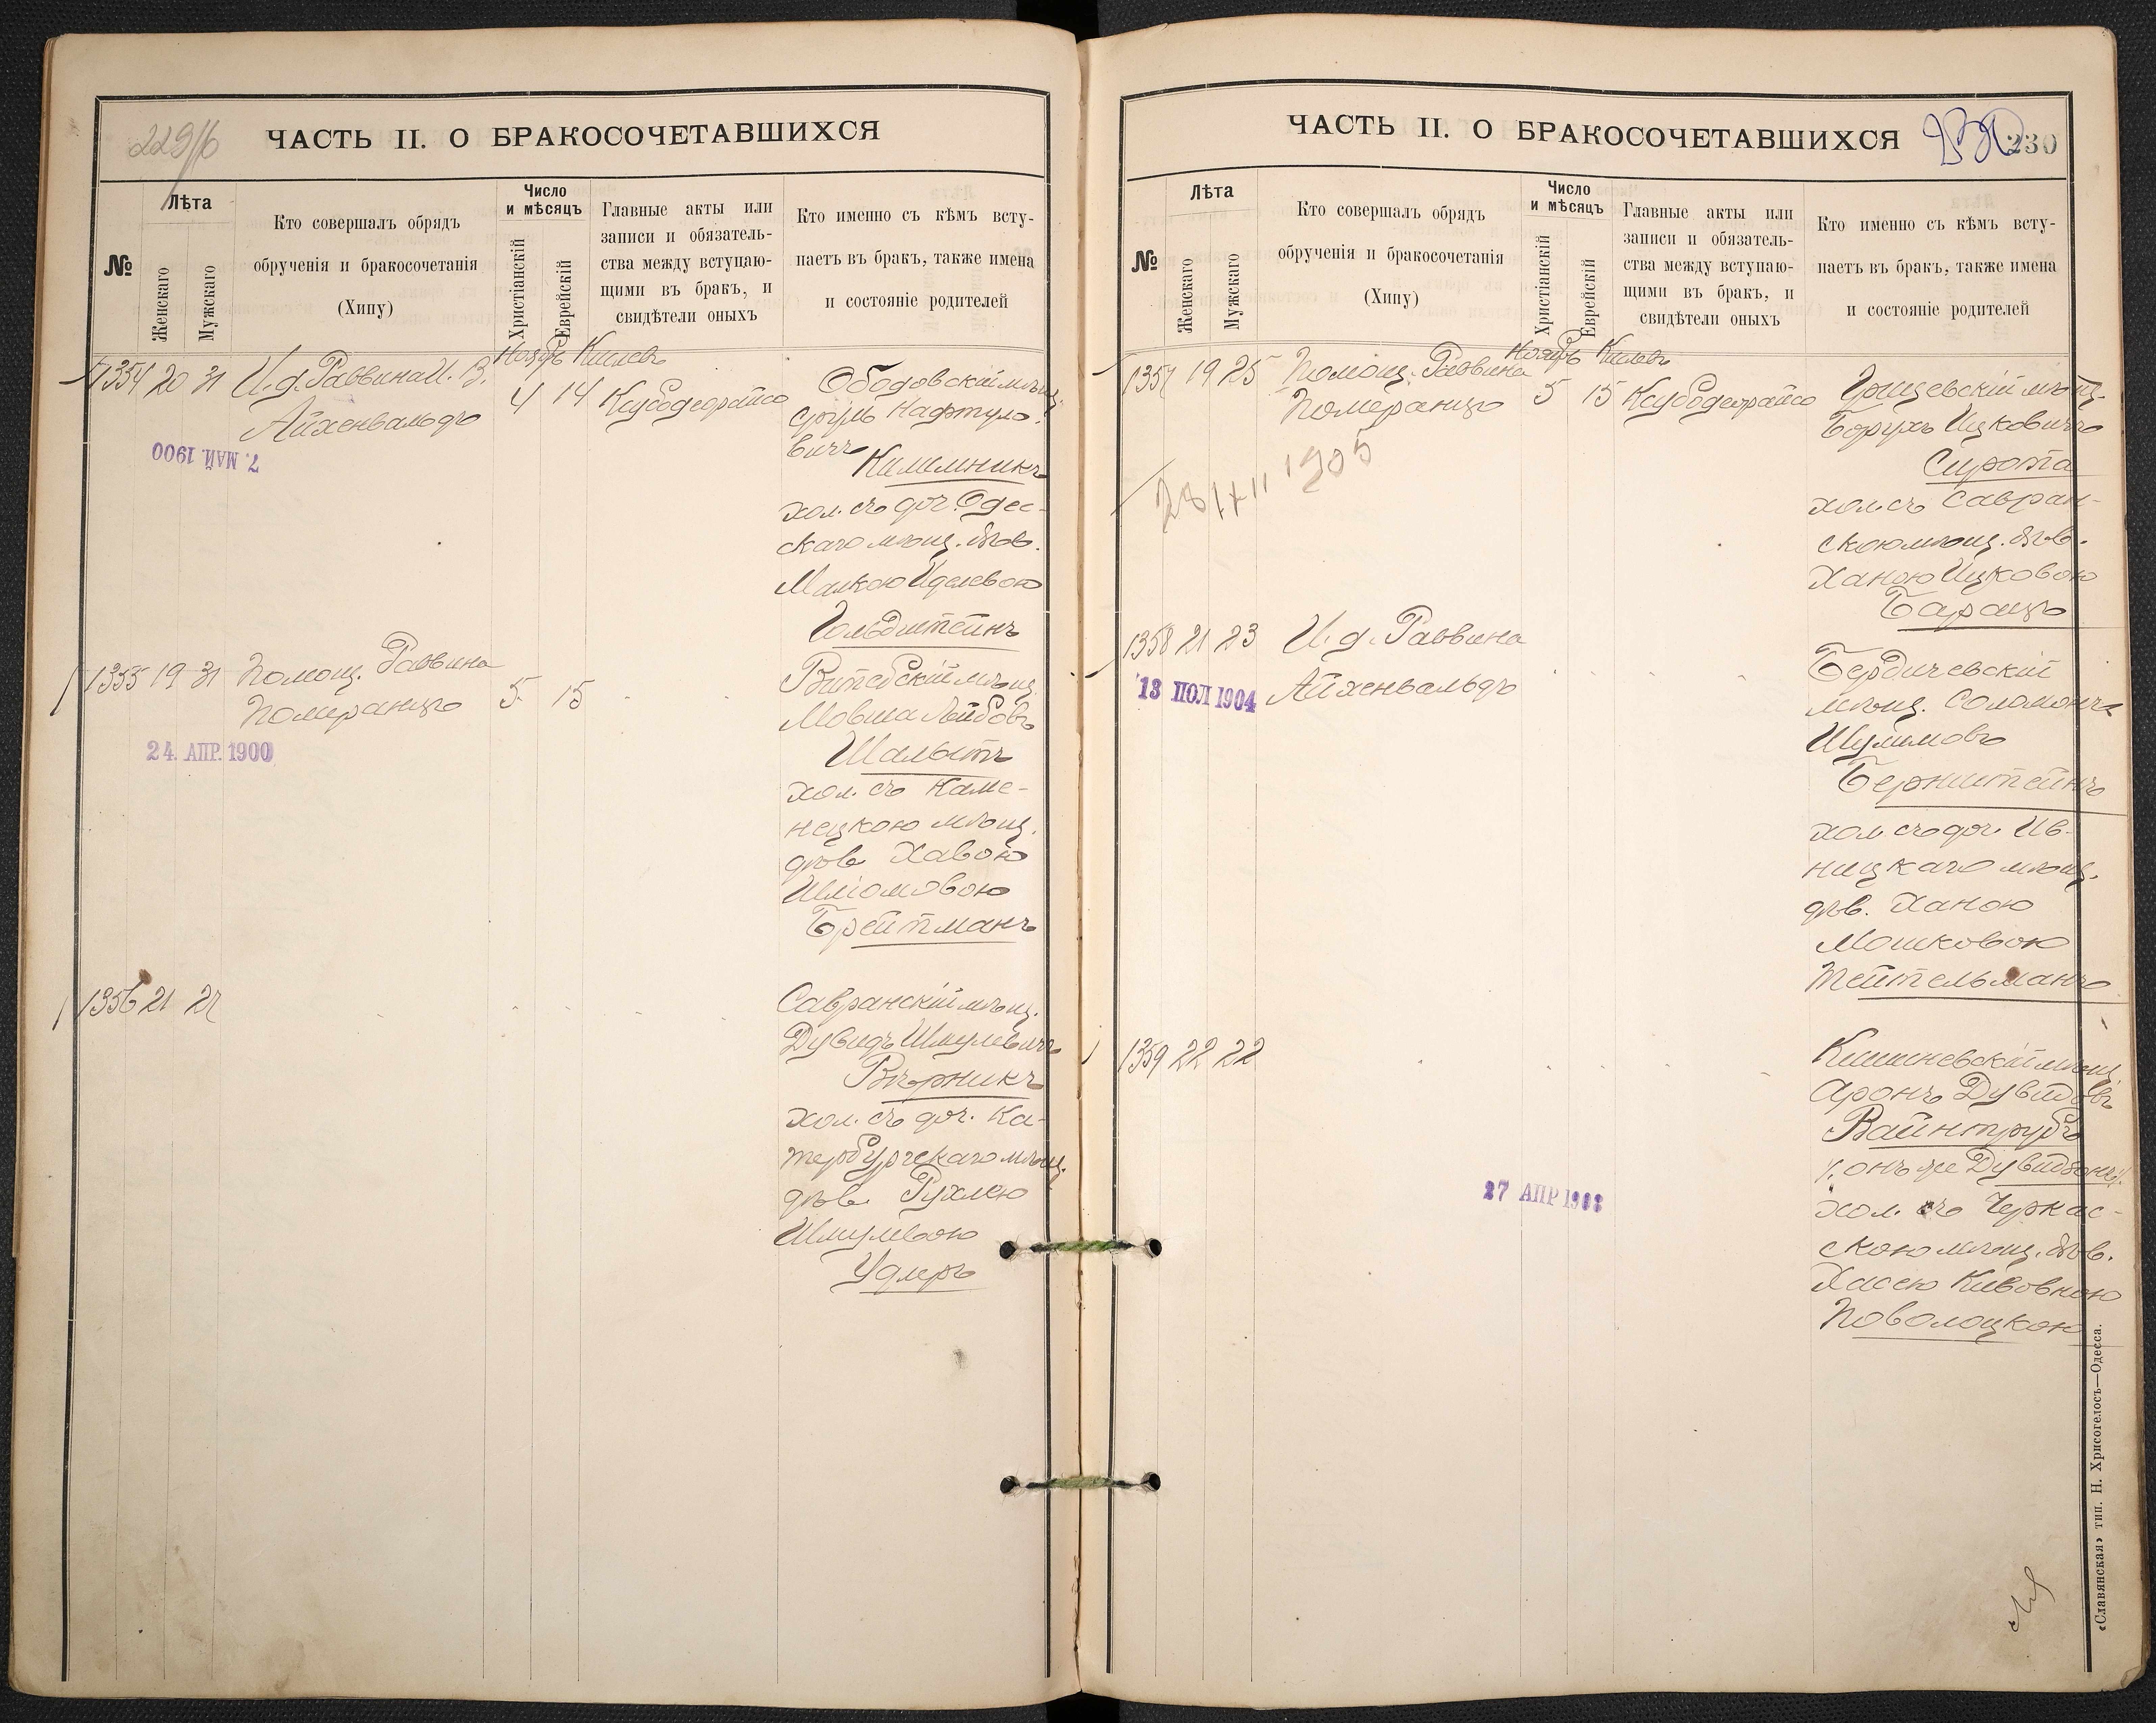 229/б
ЧАСТЬ II. О БРАКОСОЧЕТАВШИХСЯ
№
Лѣта
Женскаго
Мужскаго
Кто совершалъ обрядъ
обрученія и бракосочетанія
(Хипу)
Число
и мѣсяцъ
Христіанскій
Еврейскій
Главные акты или
записи и обязатель-
ства между вступаю-
щими въ бракъ, и
свидѣтели оныхъ
Кто именно съ кѣмъ всту-
паетъ въ бракъ, также имена
и состояніе родителей
Ноябрь Кислевъ
1354 20 31 И. д. Раввина И. В.
Айхенвальдъ
4 14 Ксубодеорайсо
7. МАЙ 1900
Ободовскій мѣщ.
Сруль Нафтуло-
вичъ
Кимельникъ
хол. съ доч. Одес-
скаго мѣщ. дѣв.
Малкою Иделевою
Гольдштейнъ
1355 19 31 Помощ. Раввина
Померанцъ
5 15
24. АПР. 1900
Витебскій мѣщ.
Мовша Лейбовъ
Шалытъ
хол. съ Каме-
нецкою мѣщ.
дѣв. Хавою
Шліомовою
Брейтманъ
1356 21 27
Савранскій мѣщ.
Дувидъ Шмулевичъ
Вѣрникъ
хол. съ доч. Ка-
тербургскаго мѣщ.
дѣв. Рухлею
Шмулевою
Удлеръ
ЧАСТЬ II. О БРАКОСОЧЕТАВШИХСЯ
230
230
№
Лѣта
Женскаго
Мужскаго
Кто совершалъ обрядъ
обрученія и бракосочетанія
(Хипу)
Число
и мѣсяцъ
Христіанскій
Еврейскій
Главные акты или
записи и обязатель-
ства между вступаю-
щими въ бракъ, и
свидѣтели оныхъ
Кто именно съ кѣмъ всту-
паетъ въ бракъ, также имена
и состояніе родителей
Ноябрь Кислевъ
1357 19 25 Помощ. Раввина
Померанцъ
5 15 Ксубодеорайсо
1905
Грицевскій мѣщ.
Борухъ Ицковичъ
Сирота
хол. съ Савран-
скою мѣщ. дѣв.
Ханою Ицковою
Барацъ
1358 21 23 И. д. Раввина
Айхенвальдъ
13 ІЮЛ 1904
Бердичевскій
мѣщ. Соломонъ
Шулимовъ
Бернштейнъ
хол. съ доч. Ив-
ницкаго мѣщ.
дѣв. Ханою
Мошковою
Тейтельманъ
1359 22 22
27 АПР
Кишиневскій мѣщ.
Аронъ Дувидовъ
Вайнтрубъ
онъ же Дувидзонъ
хол. съ Черкас-
скою мѣщ. дѣв.
Хасею Кивовною
Поволоцкою
«Славянская» тип. Н. Хрисогелосъ—Одесса.